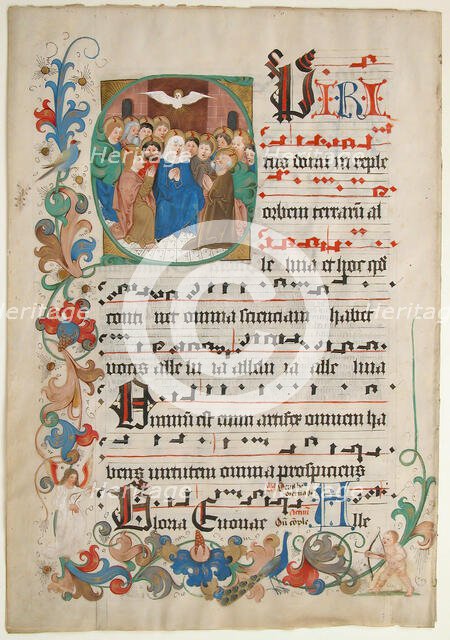 SPIRI
tus domi ni reple
orbem terraru al
le luia et hoc
conti net omnia scientiam habet
vocis alle lu ia allelu ia alle luia
Omnium est enim artifex omnem ha
bens virtutem omnia prospiciens
Gloria Euouae Alle
Heritage